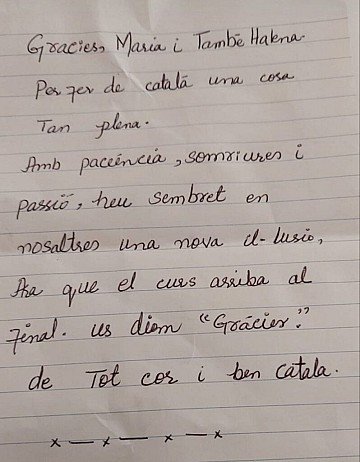 Gracies, Maria i També Halena.
Per fer de català una cosa
Tan plena.
Amb paciència, somriures i
passió, heu sembret en
nosaltres una nova il-lusió,
Ara que el curs arriba al
final. us diem "Gràcies."
de Tot cor i ben Catala.
x — x — x — x